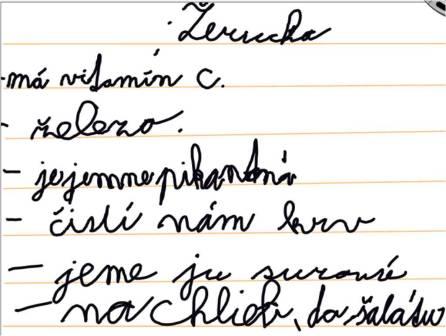 Žerucha
-má vitamín C.
- železo.
- jejemnepikantná
- čistí nám krv
- jeme ju surovú
- na chlieb, do šalátu